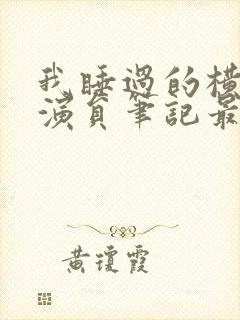 我睡過的橫
演員筆記最
黃瓊霞